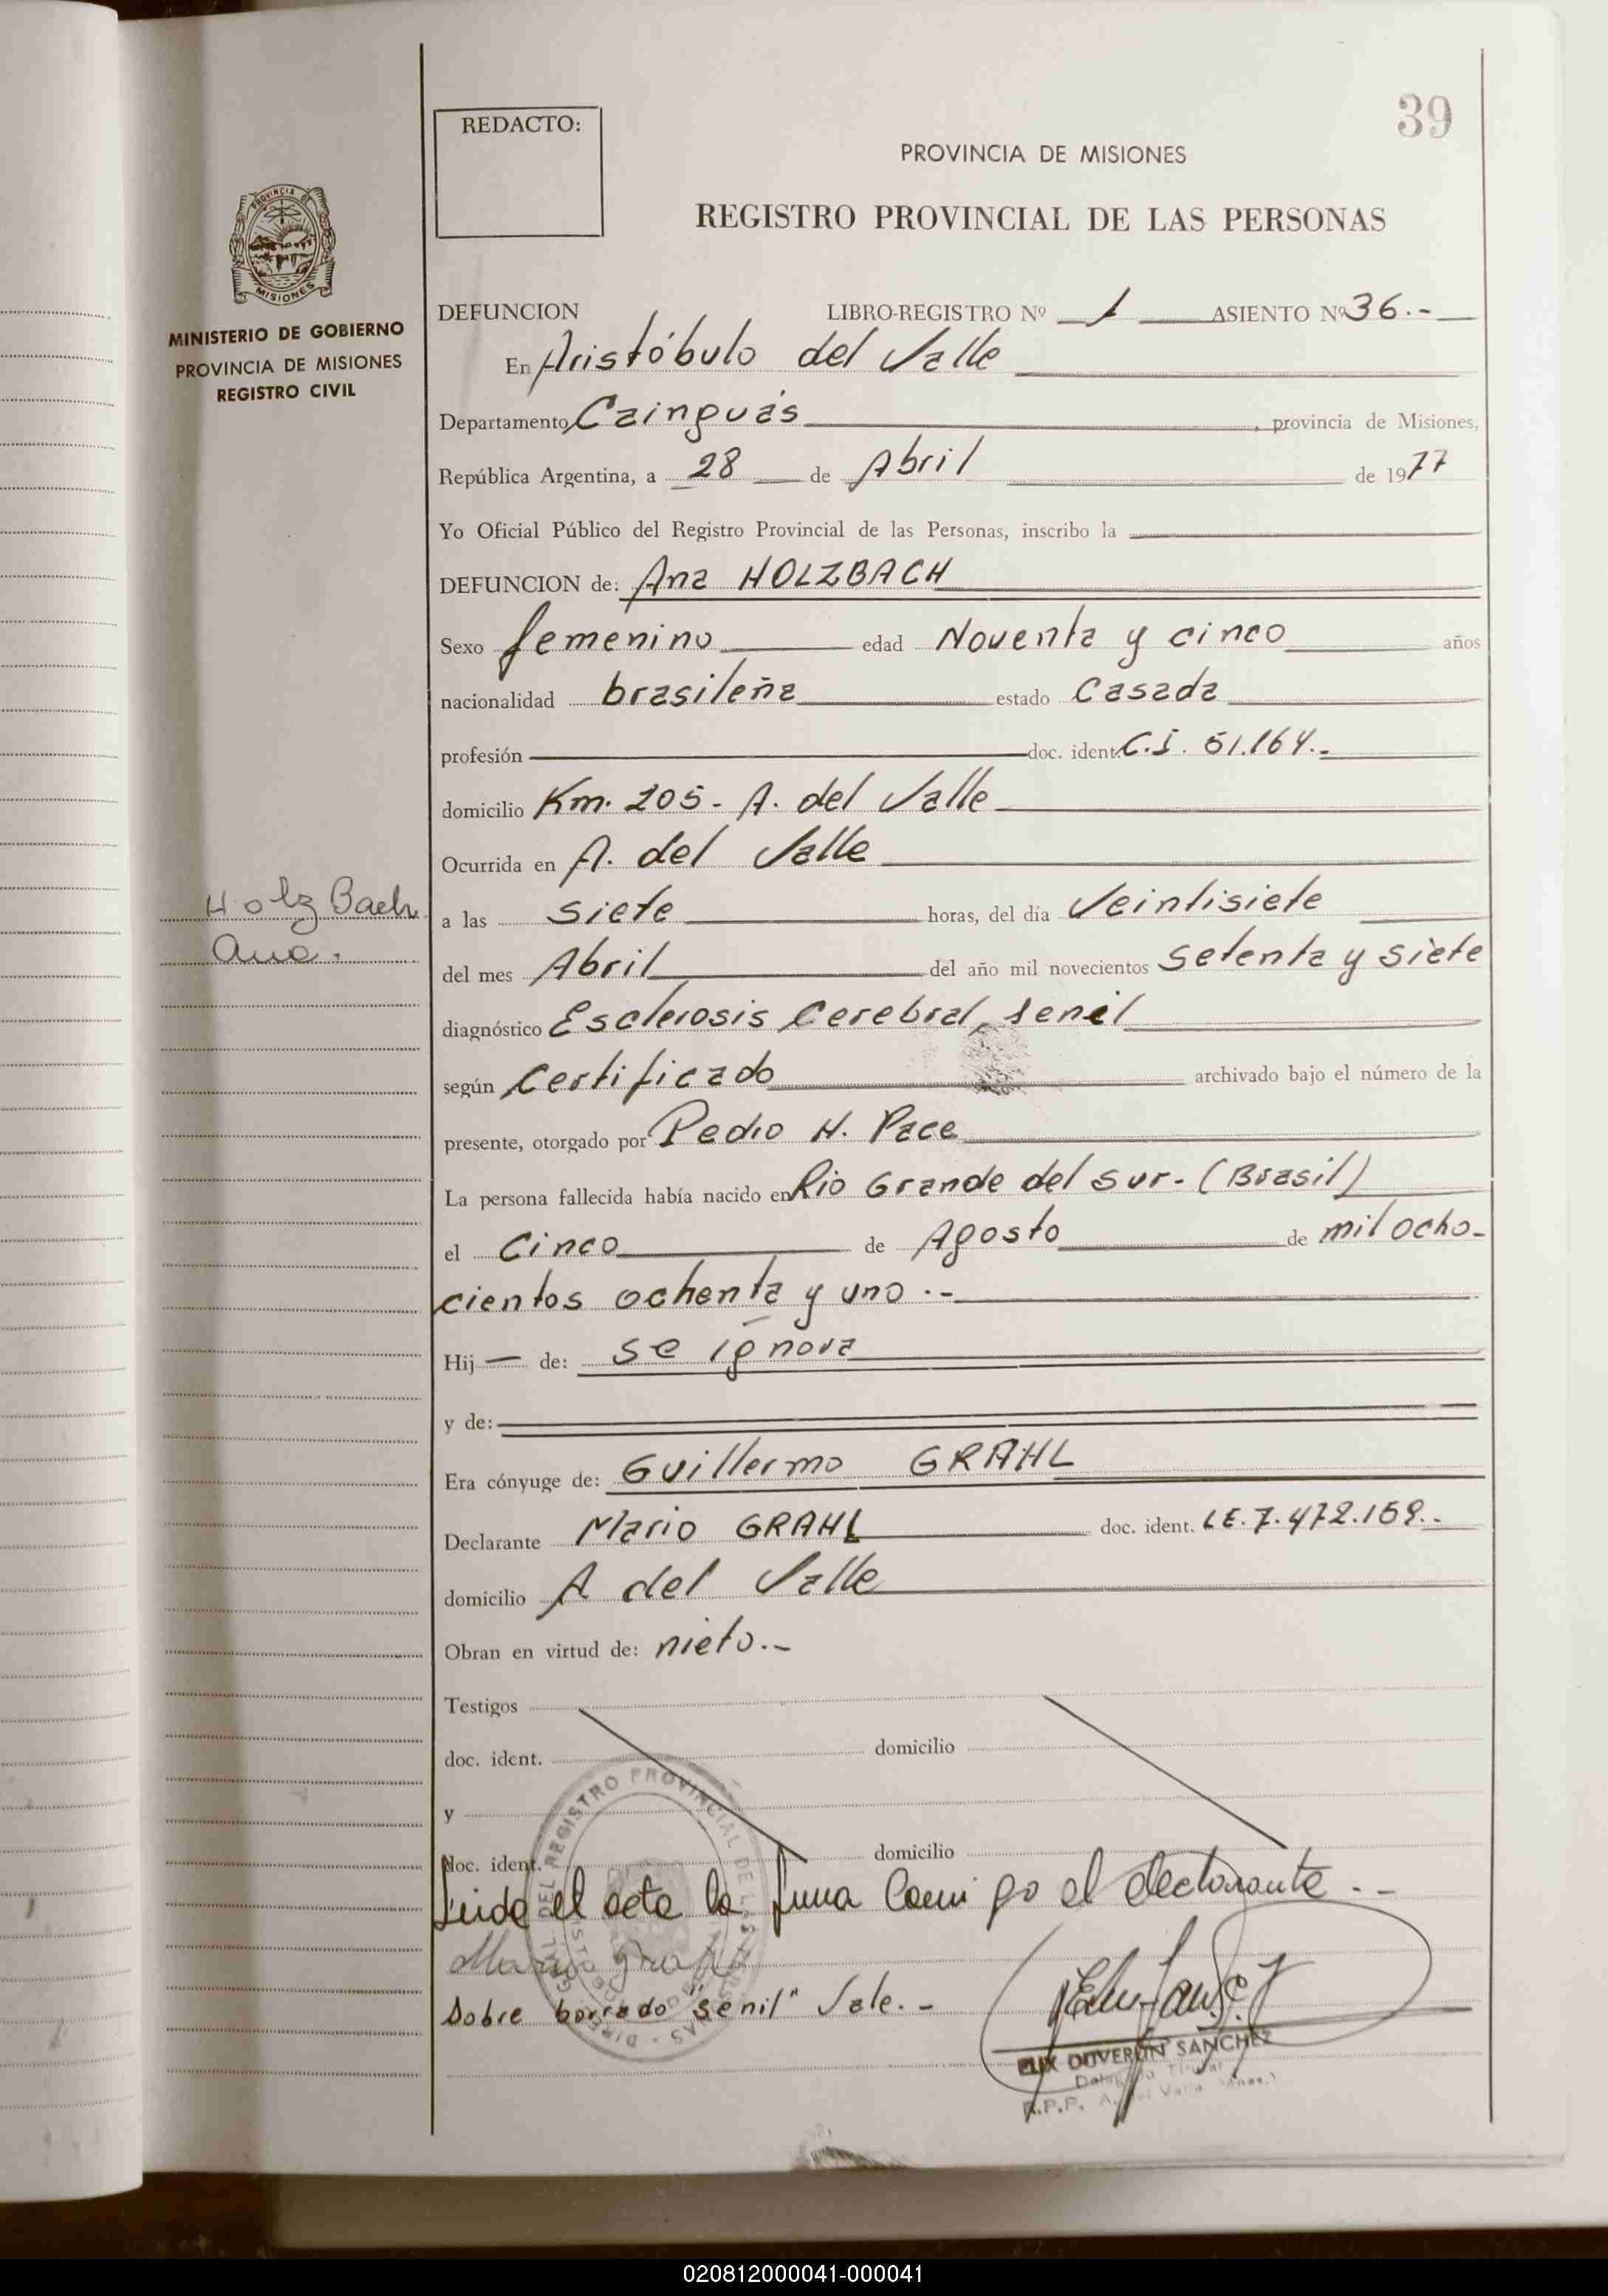 39
REDACTO:
PROVINCIA DE MISIONES
REGISTRO PROVINCIAL DE LAS PERSONAS
PROVINCIA DE
MISIONES
MINISTERIO DE GOBIERNO
PROVINCIA DE MISIONES
REGISTRO CIVIL
DEFUNCION LIBRO-REGISTRO Nº 1 ASIENTO Nº 36.-
En Aristóbulo del Valle
Departamento Cainguás, provincia de Misiones,
República Argentina, a 28 de Abril de 1977
Yo Oficial Público del Registro Provincial de las Personas, inscribo la
DEFUNCION de: Ana HOLZBACH
Sexo femenino edad Noventa y cinco años
nacionalidad brasileña estado Casada
profesión doc. ident. C.I. 51.164.-
domicilio Km. 205 - A. del Valle
Ocurrida en A. del Valle
Holz Bach
Ana.
a las siete horas, del día Veintisiete
del mes Abril del año mil novecientos setenta y siete
diagnóstico Esclerosis Cerebral, senil
según Certificado archivado bajo el número de la
presente, otorgado por Pedro H. Pace
La persona fallecida había nacido en Rio Grande del Sur - (Brasil)
el Cinco de Agosto de mil ocho-
cientos ochenta y uno .-
Hij — de: se ignora
y de:
Era cónyuge de: Guillermo GRAHL
Declarante Mario GRAHL doc. ident. LE. 7.472.159.-
domicilio A del Valle
Obran en virtud de: nieto.-
Testigos
doc. ident. domicilio
y
doc. ident. domicilio
Leida el acta la firma Conmigo el declarante.-
Mario Grahl
Sobre borrado "senil" Vale.-
REGISTRO PROVINCIAL DE LAS
SANCHEZ
R.P.P. A. del Valle
020812000041-000041